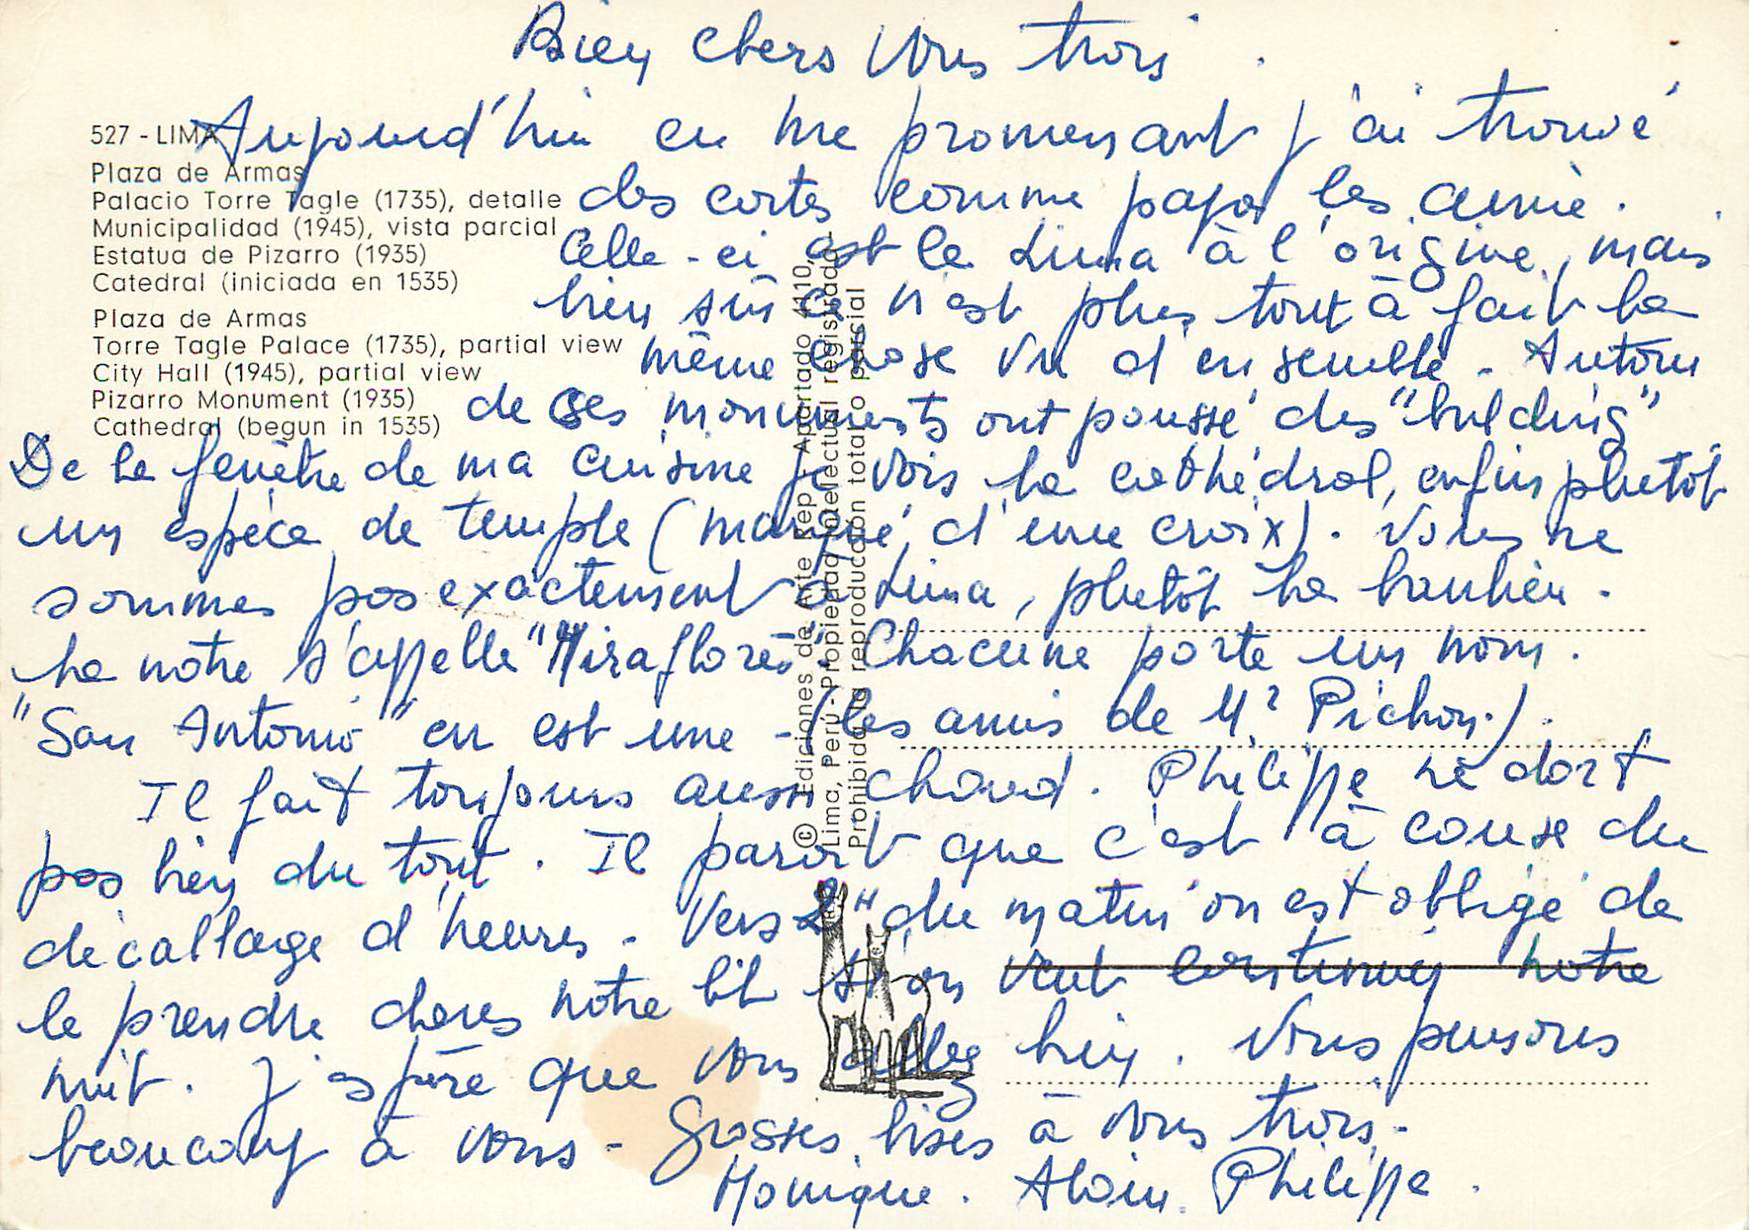 Bien chers vous trois.
Aujourd'hui en me promenant j'ai trouvé
des cartes comme papa les aime.
Celle-ci est le Lima à l'origine, mais
bien sûr ce n'est plus tout à fait la
même chose vu d'ensemble - Autour
de ses monuments ont poussé des "bulding"
De la fenêtre de ma cuisine je vois la cathédral, enfin plutôt
un espèce de temple (marqué d'une croix). Nous ne
sommes pas exactement à Lima, plutôt la banlieu.
La notre s'appelle "Miraflores". Chacune porte un nom.
"San Antonio" en est une - (les amis de Mr Pichon.).
Il fait toujours aussi chaud. Philippe ne dort
pas bien du tout. Il parait que c'est à cause du
décallage d'heures - Vers 2h du matin on est obligé de
le prendre dans notre lit si on veut continuer notre
nuit. J'espère que vous allez bien. Nous pensons
beaucoup à vous - Grosses bises à vous trois.
Monique. Alain. Philippe.
527 - LIMA
Plaza de Armas
Palacio Torre Tagle (1735), detalle
Municipalidad (1945), vista parcial
Estatua de Pizarro (1935)
Catedral (iniciada en 1535)
Plaza de Armas
Torre Tagle Palace (1735), partial view
City Hall (1945), partial view
Pizarro Monument (1935)
Cathedral (begun in 1535)
© Ediciones de Arte Rep - Apartado 4110,
Lima, Perú - Propiedad intelectual registrada -
Prohibida la reproducción total o parcial